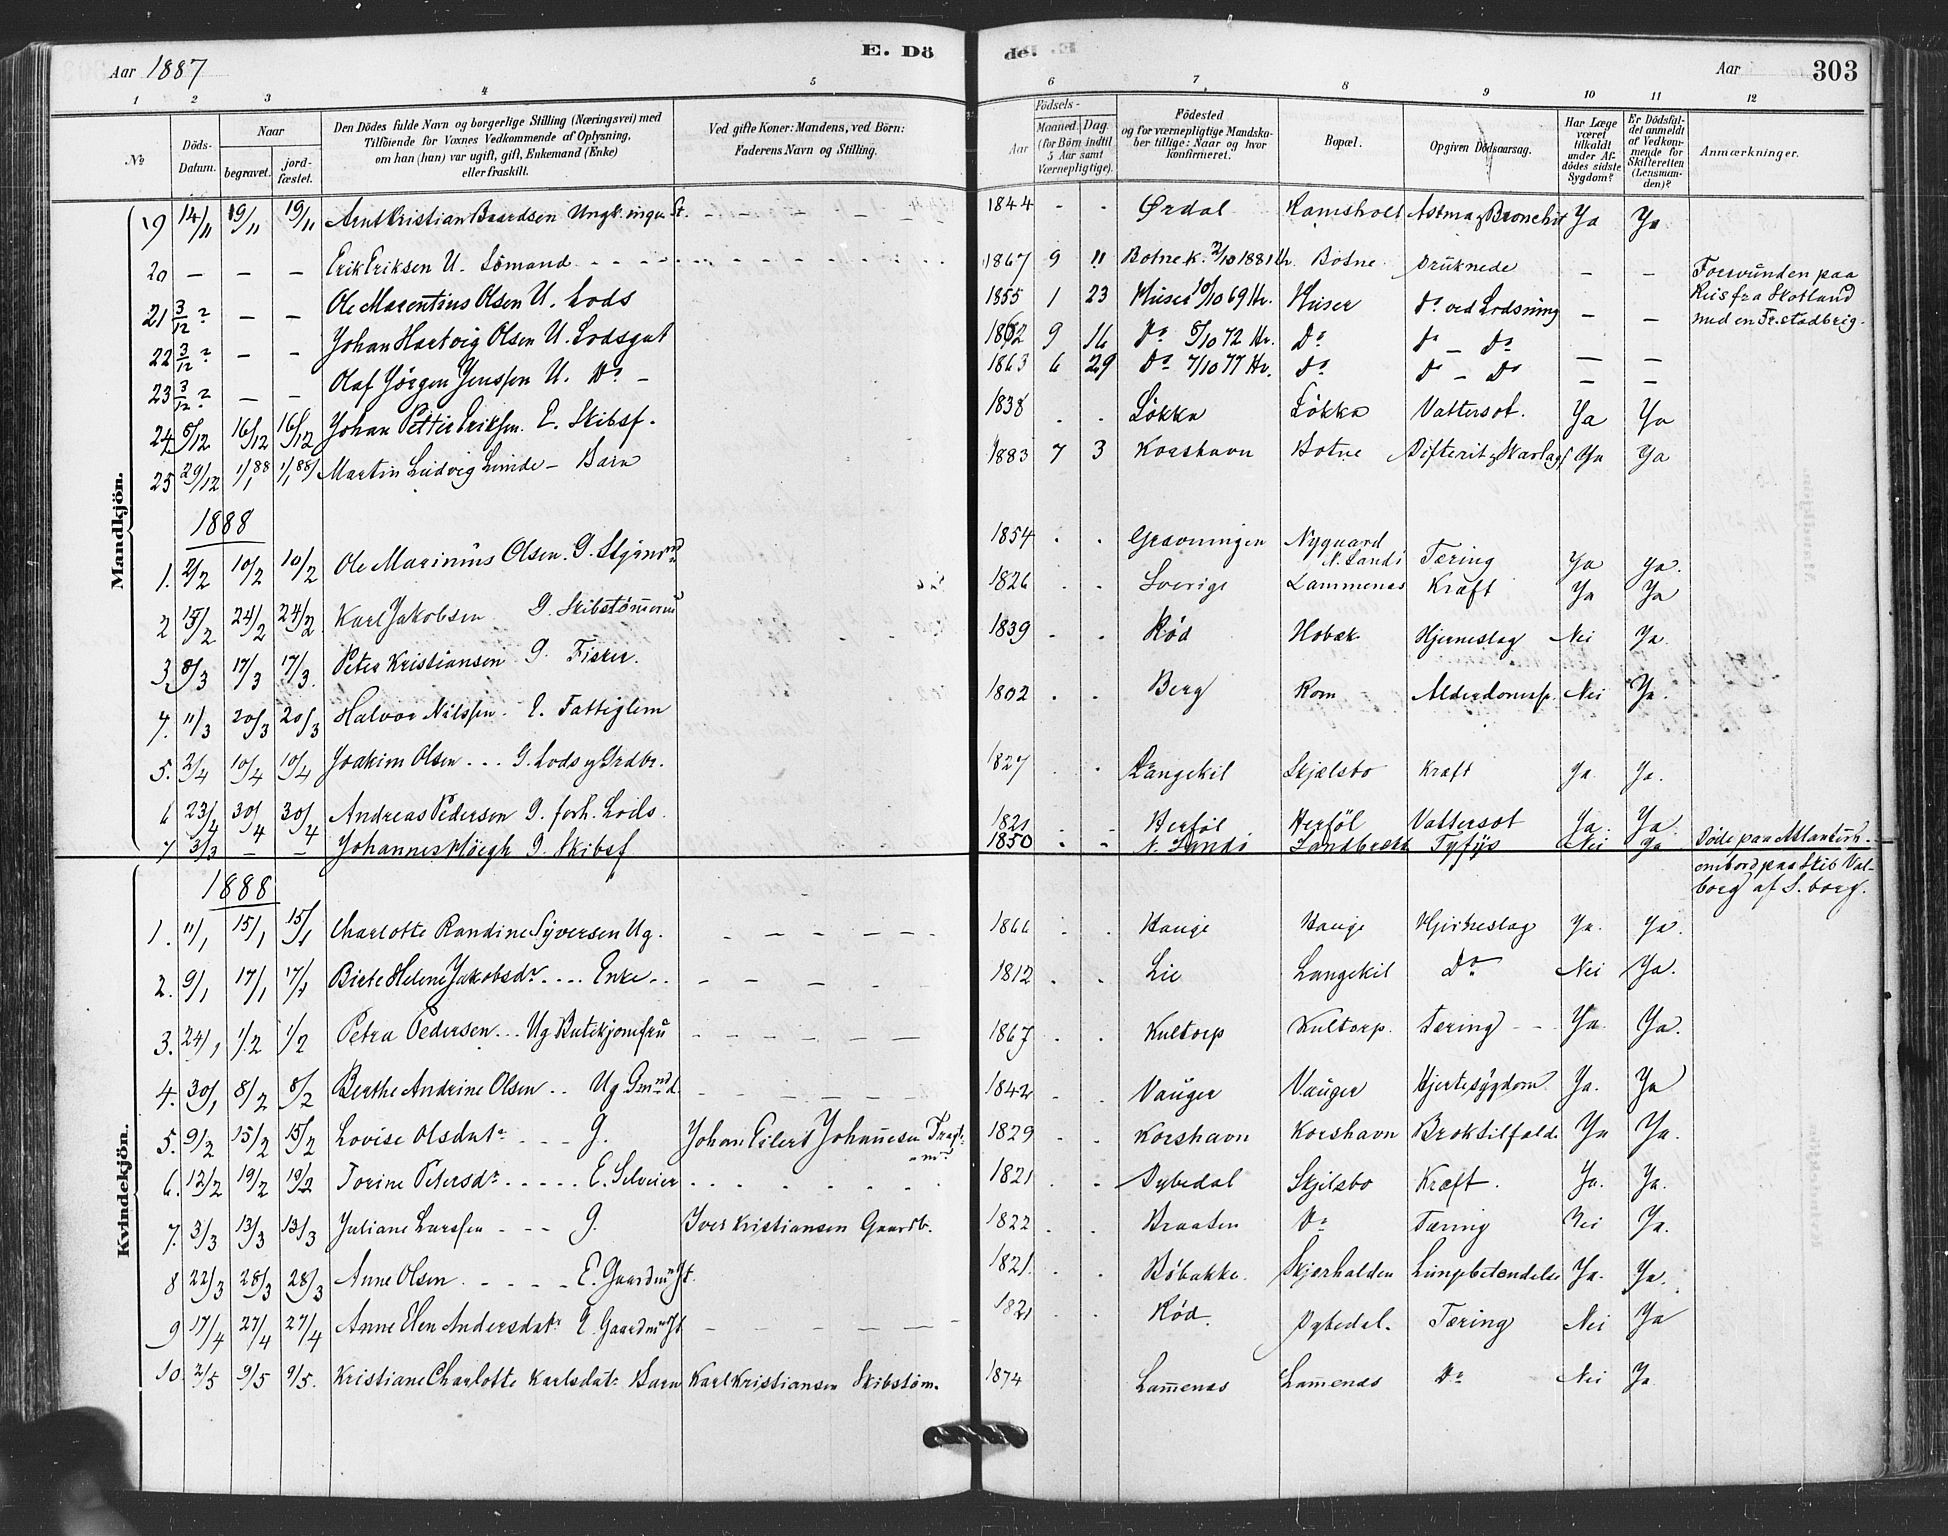 E. Dö
Aar 1887
1 2 3 4 5
№
Döds-Datum.
Naar
begravet.
jord-fæstet.
Den Dödes fulde Navn og borgerlige Stilling (Næringsvei) med
Tilföiende for Voxnes Vedkommende af Oplysning,
om han (hun) var ugift, gift, Enkemand (Enke)
eller fraskilt.
Ved gifte Koner: Mandens, ved Börn:
Faderens Navn og Stilling.
Mandkjön.
19 14/11 19/11 19/11 Arnt Kristian Baardsen Ungk.
20 — — — Erik Eriksen U. Sömand
21 3/12 ? — — Ole Marentius Olsen U. Lods
22 3/12 ? — — Johan Hartvig Olsen U. Lodsgut
23 3/12 ? — — Olaf Jörgen Jenssen U. Do —
24 5/12 16/12 16/12 Johan Petter Eriksen. E. Skibsf.
25 29/12 1/1 88 1/1 88 Martin Ludvig Linde — Barn
1888
1. 2/2 10/2 10/2 Ole Marinius Olsen. G.
2 15/2 24/2 24/2 Karl Jakobsen G.
3. 8/3 17/3 17/3. Peter Kristiansen G. Fisker.
4. 11/3 20/3 20/3 Halvor Nilssen. E. Fattiglem
5. 2/4 10/4 10/4 Joakim Olsen ... G. Lods og Grdbr.
6 23/4 30/4 30/4 Andreas Pedersen G. forh. Lods.
7 3/3 — — Johannes Höegh G. Skibsf
Kvindekjön.
1888
1. 11/1 15/1 15/1 Charlotte Randine Syversen Ug.
2. 9/1 17/1 17/1 Birte Helene Jakobsdr .... Enke..
3. 24/1 1/2 1/2 Petra Pedersen ... Ug Butikjomfru
4. 30/1 8/2 8/2 Berthe Andrine Olsen .. Ug
5. 9/2 15/2 15/2 Lovise Olsdatr G. Johan Eilert Johanesen
6. 12/2 19/2 19/2 Torine Petersdr ..... E. Selveier
7. 3/3 13/3 13/3 Juliane Larssen — — G. Iver Kristiansen Gaardb.
8 22/3 28/3 28/3 Anne Olsen. E.
9 17/4 27/4 27/4 Anne Elen Andersdatr E.
10. 2/5 9/5 9/5. Kristiane Charlotte Karlsdatr Barn Karl Kristiansen Skibstöm.
303
Aar
6 7 8 9 10 11 12
Födsels-
Aar
Maaned. Dag.
(for Börn indtil
5 Aar samt
Værnepligtige).
Födested
og for værnepligtige Mandska-
ber tillige: Naar og hvor
konfirmeret.
Bopæl.
Opgiven Dödsaarsag.
Har Læge
været
tilkaldt
under Af-
dödes sidste
Sygdom?
Er Dödsfal-
det anmeldt
af Vedkom-
mende for
Skifteretten
(Lensman-
den)?
Anmærkninger.
1844 - - Ørdal Astma og Bronchit Ja Ja
1867 9 11 Botne Botne Druknede — — Forsvunden paa
Reis fra Skotland
med en Fr.stadbrig.
1855 1 23 Huser 10/10 69 Hv. Huser Do ved Lodsning — —
1862 9 16 Do 6/10 72 Hv. Do Do — Do — —
1863 6 29 Do 7/10 77 Hv. Do Do — Do — —
1838 . . Løkka Løkka Vattersot. Ja Ja
1883 7 3 Korshavn Botne Difterit og Skarlagf Ja Ja
1854 . . Gravningen Nygaard N. Sandö Tæring Ja Ja.
1826 . . Sverige Lammenes Kræft Ja Ja
1839 . . Rød Hobæk Hjerneslag Nei Ja.
1802 . . Berg Rom Alderdomssv. Nei Ja.
1827 . . Langekil Skjælsbo Kræft Ja. Ja.
1821 - - Herføl Herføl Vattersot Ja. Ja
1850 . . N. Sandö Tyfus Nei Ja Döde paa Atlanterh.
ombord paa Skib Val-
borg af S. borg.
1866 . . Hauge Hauge Hjerneslag Ja. Ja.
1812 . . Lie Langekil Do Nei Ja.
1867 . . Kultorp Kultorp. Tæring — — Ja Ja.
1842 . . Vauger Vauger Hjertesygdom Ja. Ja
1829 . . Korshavn Korshavn Broktilfælde Ja Ja.
1821 . . Dybedal Skjelsbo Kræft. Ja. Ja.
1822 . . Braaten Do Tæring Nei Ja.
1821. . . Bøbakke. Skjærhalden Lungebetendelse Ja. Ja.
1821 . . Rød. Dybedal. Tæring Nei Ja
1874 Lamenes Lamenes Do Nei Ja